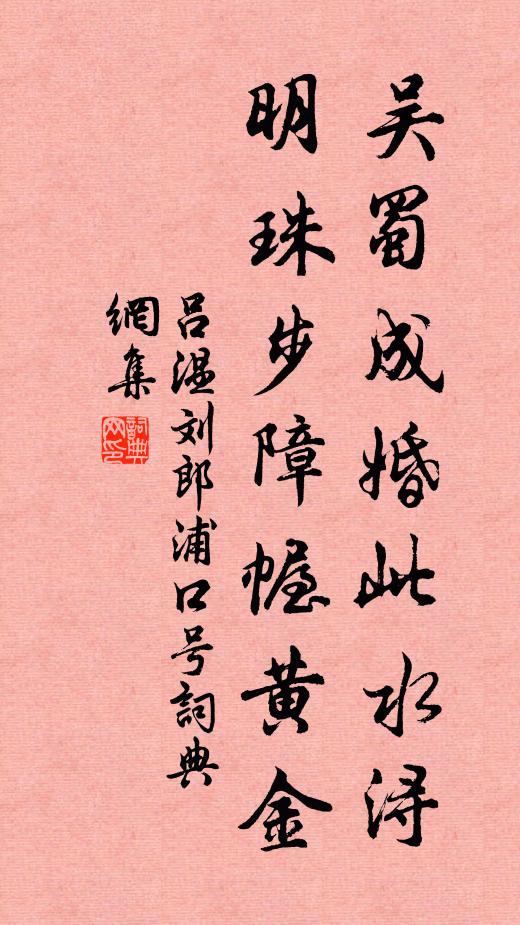 吴蜀成婚此水浔
明珠步障幄黄金
吕温刘郎浦口号詞典
網集
詞典網印